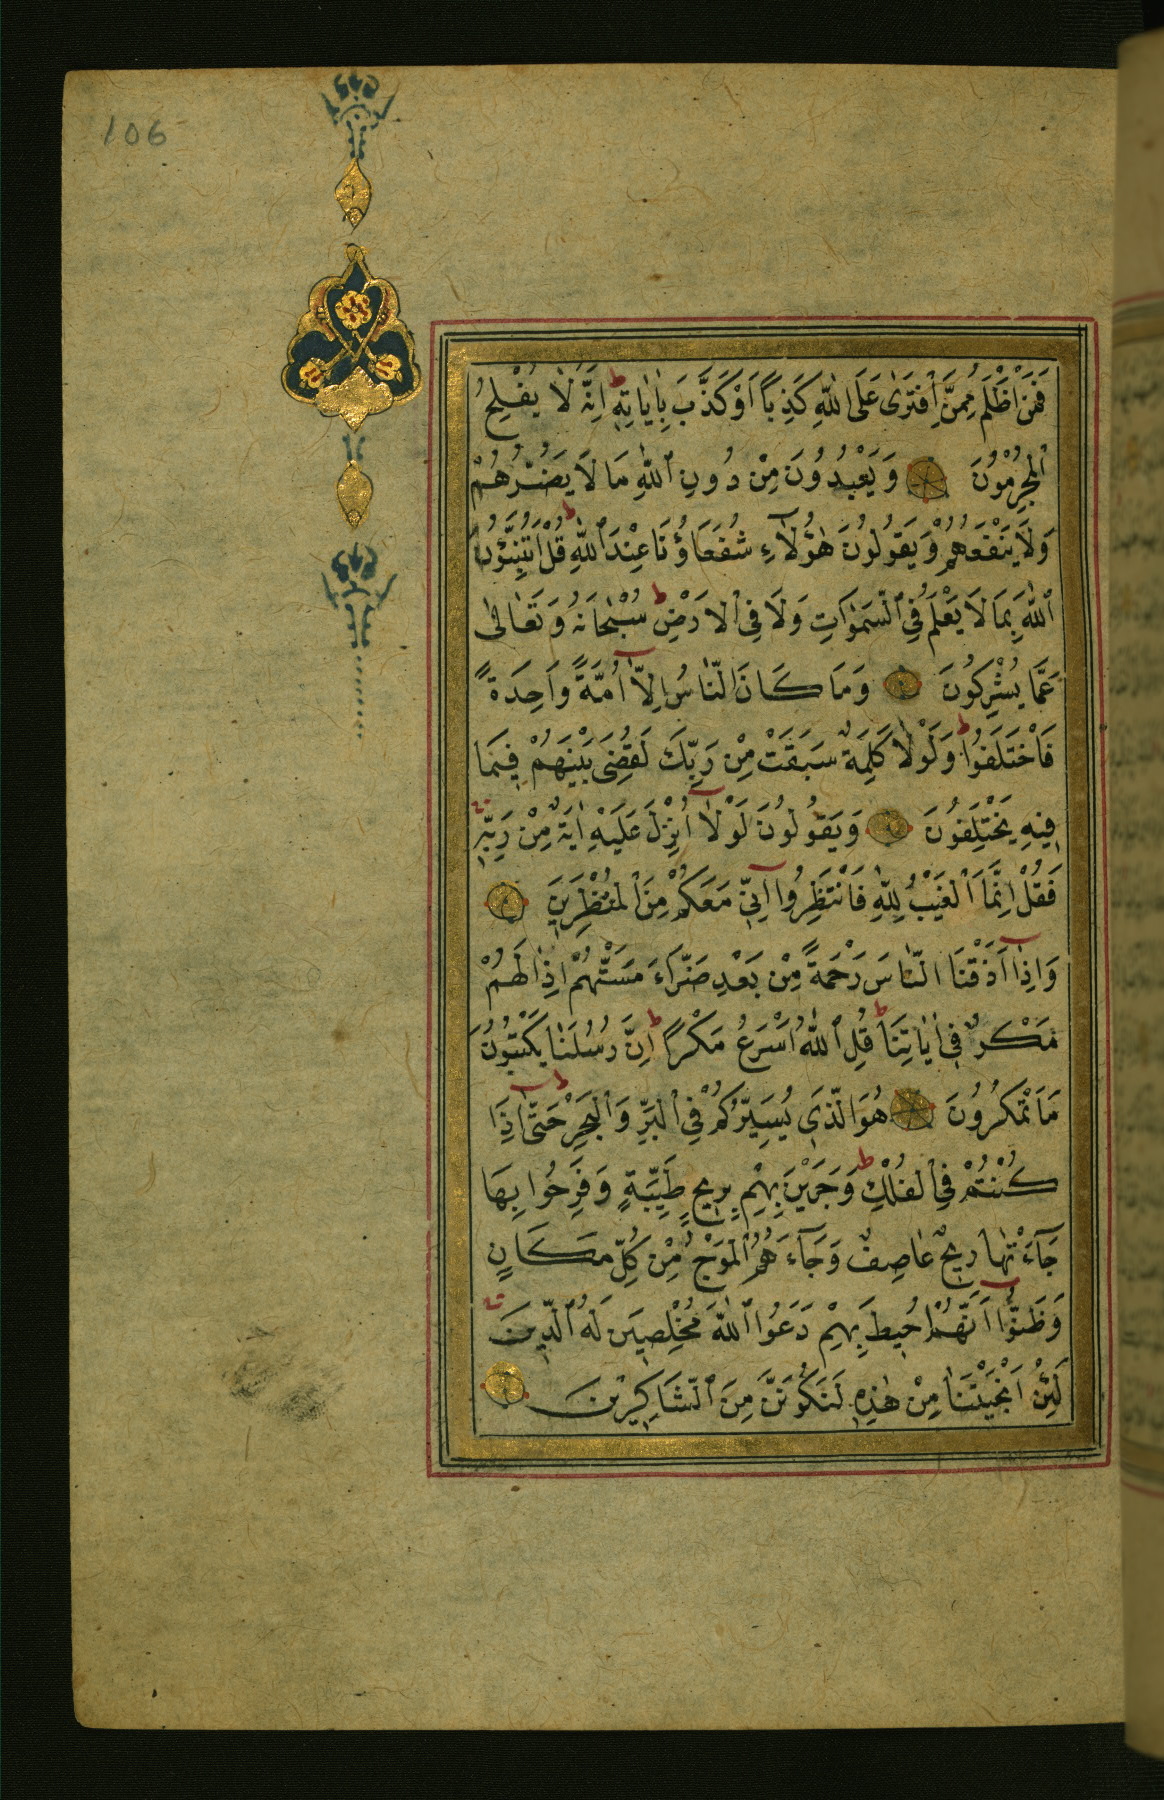 106
فَمَنْ اَظْلَمُ مِمَّنِ افْتَرٰى عَلَى اللّٰهِ كَذِبًا اَوْ كَذَّبَ بِاٰيَاتِهٖ ط اِنَّهُ لَا يُفْلِحُ
الْمُجْرِمُونَ وَيَعْبُدُونَ مِنْ دُونِ اللّٰهِ مَا لَا يَضُرُّهُمْ
وَلَا يَنْفَعُهُمْ وَيَقُولُونَ هٰؤُلَآءِ شُفَعَاؤُنَا عِنْدَ اللّٰهِ ط قُلْ اَتُنَبِّئُونَ
اللّٰهَ بِمَا لَا يَعْلَمُ فِى السَّمٰوَاتِ وَلَا فِى الْاَرْضِ ط سُبْحَانَهُ وَتَعَالٰى
عَمَّا يُشْرِكُونَ وَمَا كَانَ النَّاسُ اِلَّآ اُمَّةً وَاحِدَةً
فَاخْتَلَفُوا ط وَلَوْلَا كَلِمَةٌ سَبَقَتْ مِنْ رَبِّكَ لَقُضِىَ بَيْنَهُمْ فِيمَا
فِيهِ يَخْتَلِفُونَ وَيَقُولُونَ لَوْلَآ اُنْزِلَ عَلَيْهِ اٰيَةٌ مِنْ رَبِّهٖ
فَقُلْ اِنَّمَا الْغَيْبُ لِلّٰهِ فَانْتَظِرُوا اِنِّى مَعَكُمْ مِنَ الْمُنْتَظِرِينَ
وَاِذَآ اَذَقْنَا النَّاسَ رَحْمَةً مِنْ بَعْدِ ضَرَّآءَ مَسَّتْهُمْ اِذَا لَهُمْ
مَكْرٌ فِى اٰيَاتِنَا ط قُلِ اللّٰهُ اَسْرَعُ مَكْرًا ط اِنَّ رُسُلَنَا يَكْتُبُونَ
مَا تَمْكُرُونَ هُوَ الَّذِى يُسَيِّرُكُمْ فِى الْبَرِّ وَالْبَحْرِ ط حَتّٰىٓ اِذَا
كُنْتُمْ فِى الْفُلْكِ ط وَجَرَيْنَ بِهِمْ بِرِيحٍ طَيِّبَةٍ وَفَرِحُوا بِهَا
جَآءَتْهَا رِيحٌ عَاصِفٌ وَجَآءَهُمُ الْمَوْجُ مِنْ كُلِّ مَكَانٍ
وَظَنُّوٓا اَنَّهُمْ اُحِيطَ بِهِمْ دَعَوُا اللّٰهَ مُخْلِصِينَ لَهُ الدِّينَ
لَئِنْ اَنْجَيْتَنَا مِنْ هٰذِهٖ لَنَكُونَنَّ مِنَ الشَّاكِرِينَ